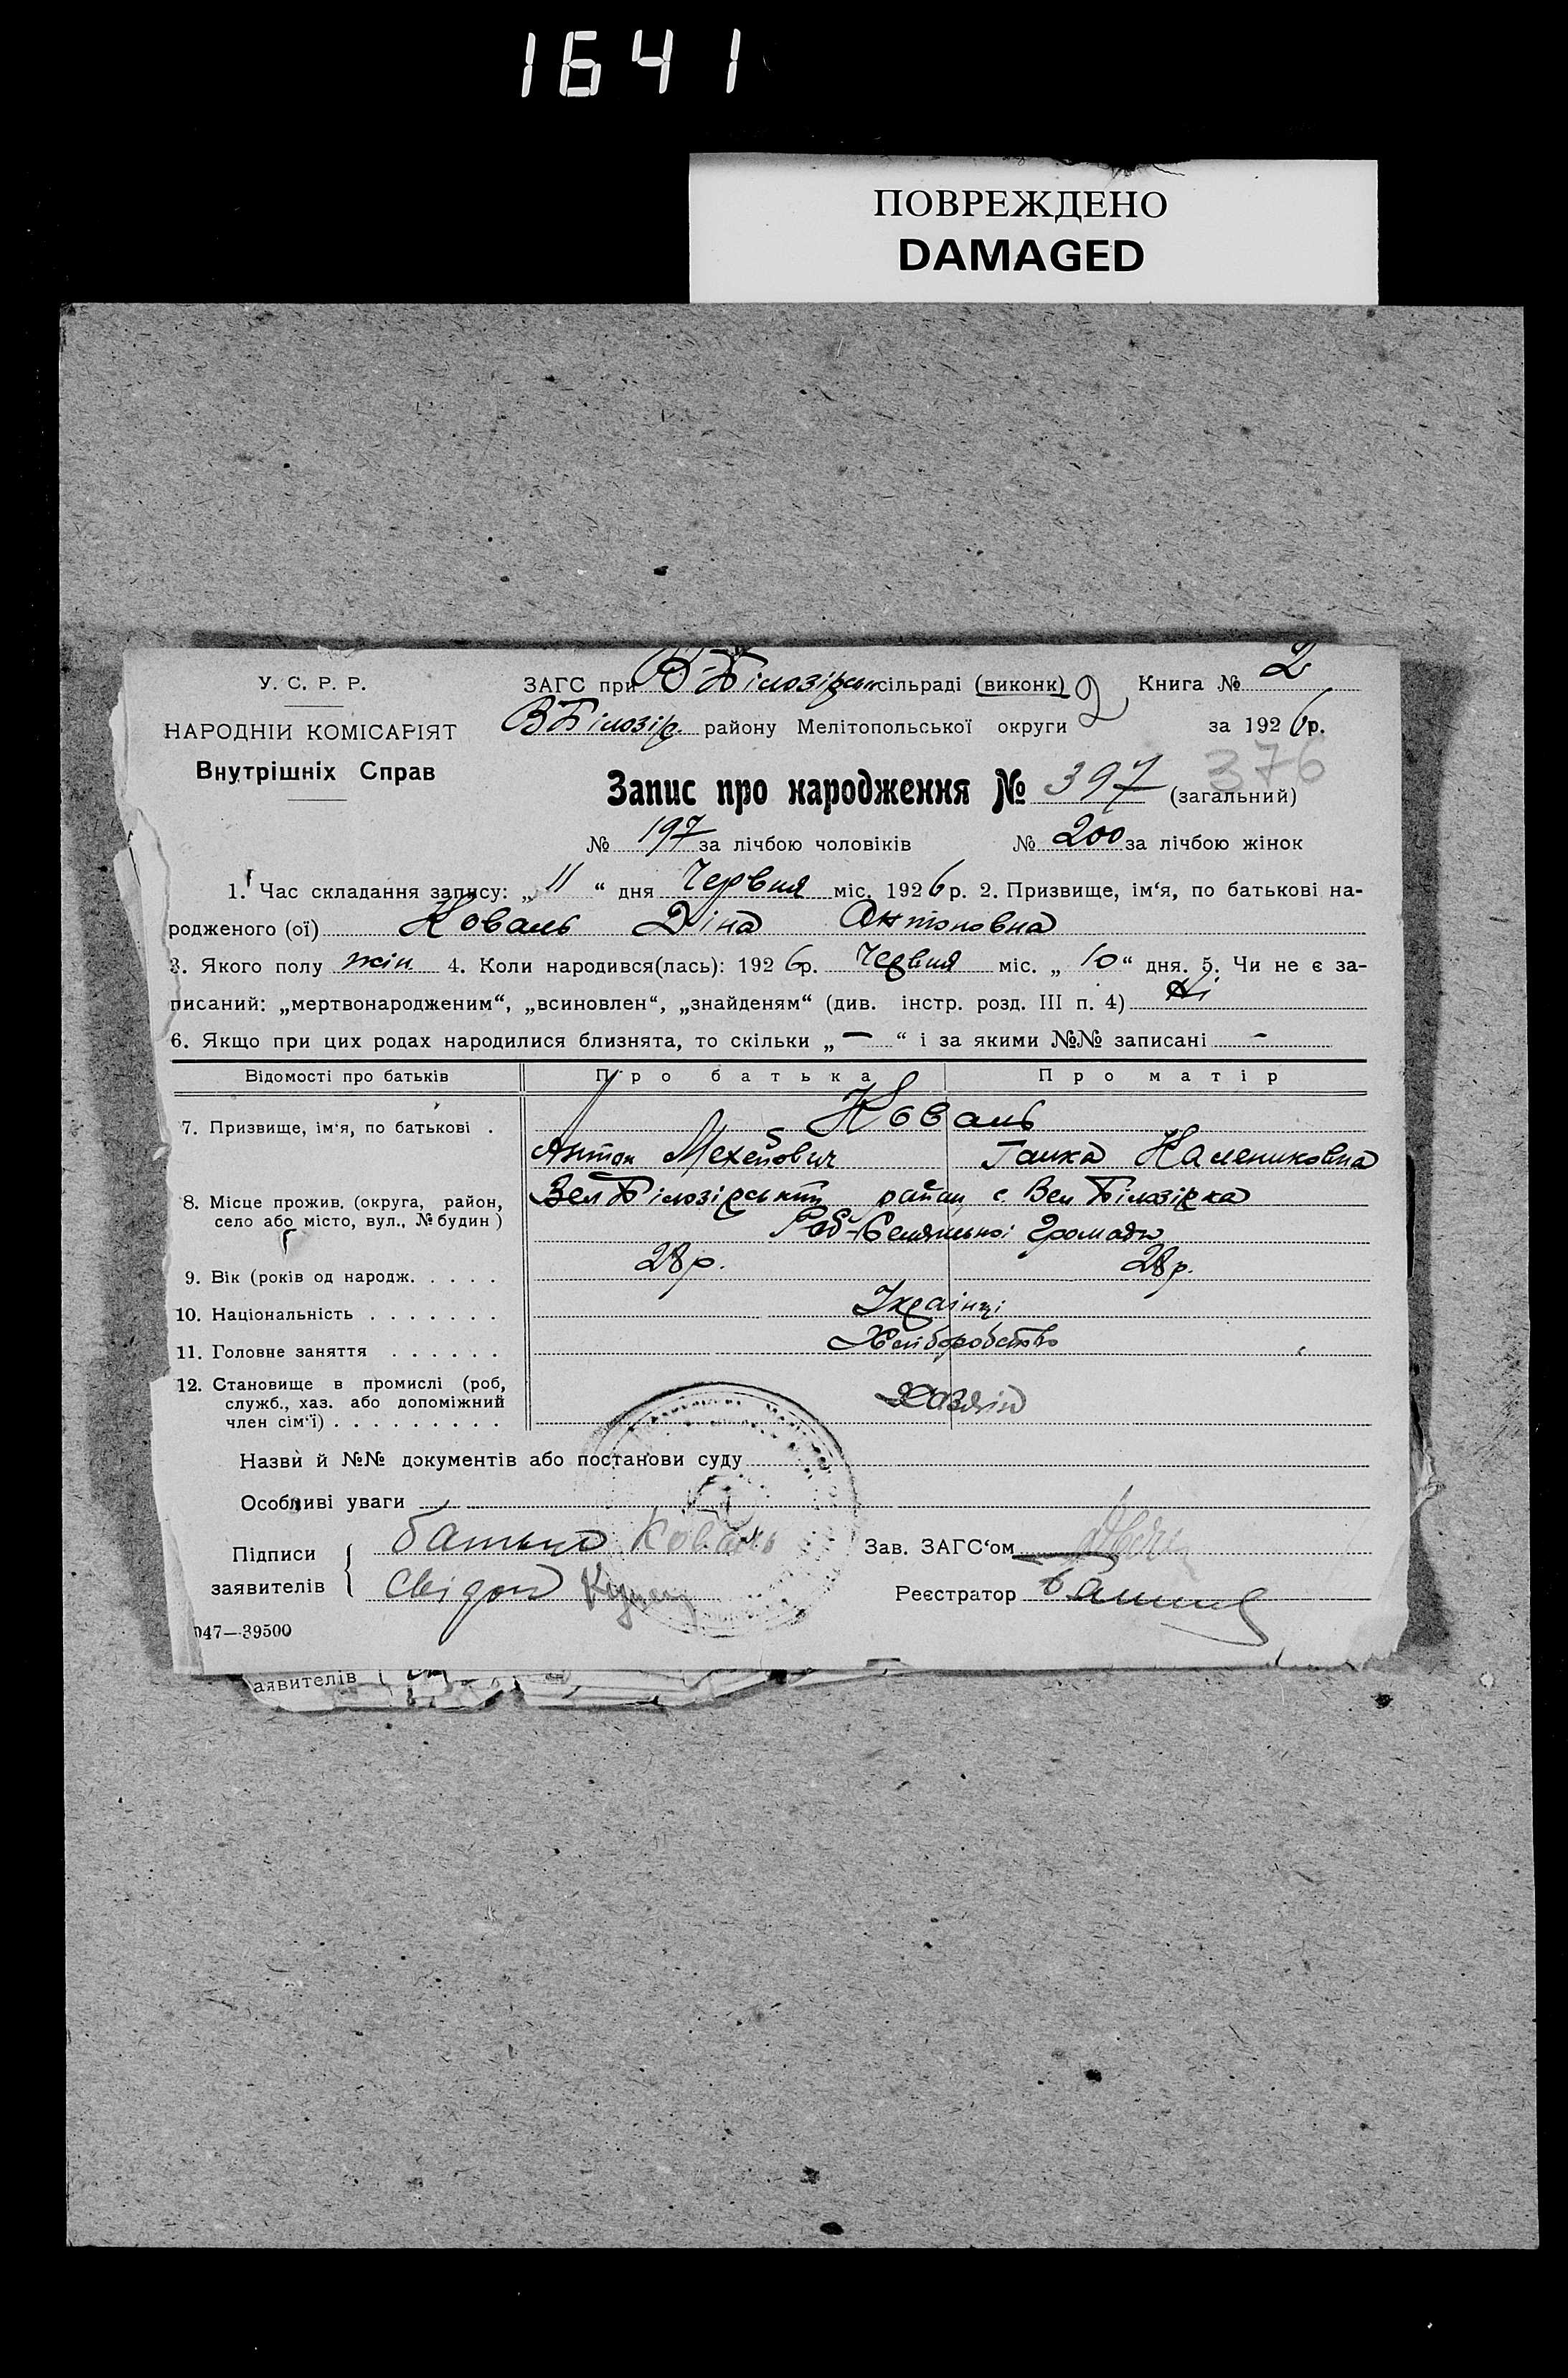 1641
ПОВРЕЖДЕНО
DAMAGED
У. С. Р. Р.
НАРОДНІЙ КОМІСАРІЯТ
Внутрішніх Справ
ЗАГС при В-Білозірськ сільраді (виконк) 2 Книга № 2
ВБілозір. району Мелітопольської округи за 1926 р.
376
Запис про народження № 397 (загальний)
№ 197 за лічбою чоловіків № 200 за лічбою жінок
1. Час складання запису: „ 11 “ дня Червня міс. 1926 р. 2. Призвище, ім‘я, по батькові на-
родженого (ої) Коваль Діна Антоновна
3. Якого полу жін 4. Коли народився(лась): 1926 р. Червня міс. „ 10 “ дня. 5. Чи не є за-
писаний: „мертвонародженим“, „всиновлен“, „знайденям“ (див. інстр. розд. III п. 4) Ні
6. Якщо при цих родах народилися близнята, то скільки „ — “ і за якими №№ записані -
Відомості про батьків Про батька Про матір
7. Призвище, ім‘я, по батькові . Коваль
Антон Мехейович Ганка Калениковна
8. Місце прожив. (округа, район, село або місто, вул., № будин) Вел Білозірський район с. Вел Білозірка
Роб-Селянської Громади
9. Вік (років од народж. . . . . 28 р. 28 р.
10. Національність . . . . . . . Украінці
11. Головне заняття . . . . . . Хлиборобство
12. Становище в промислі (роб, служб., хаз. або допоміжний член сім‘ї) . . . . . . . . . Хазяін
Назви й №№ документів або постанови суду
Особливі уваги
Підписи заявителів { батько Коваль
свідок Кущ
Зав. ЗАГС‘ом
Реєстратор
047—39500
аявителів